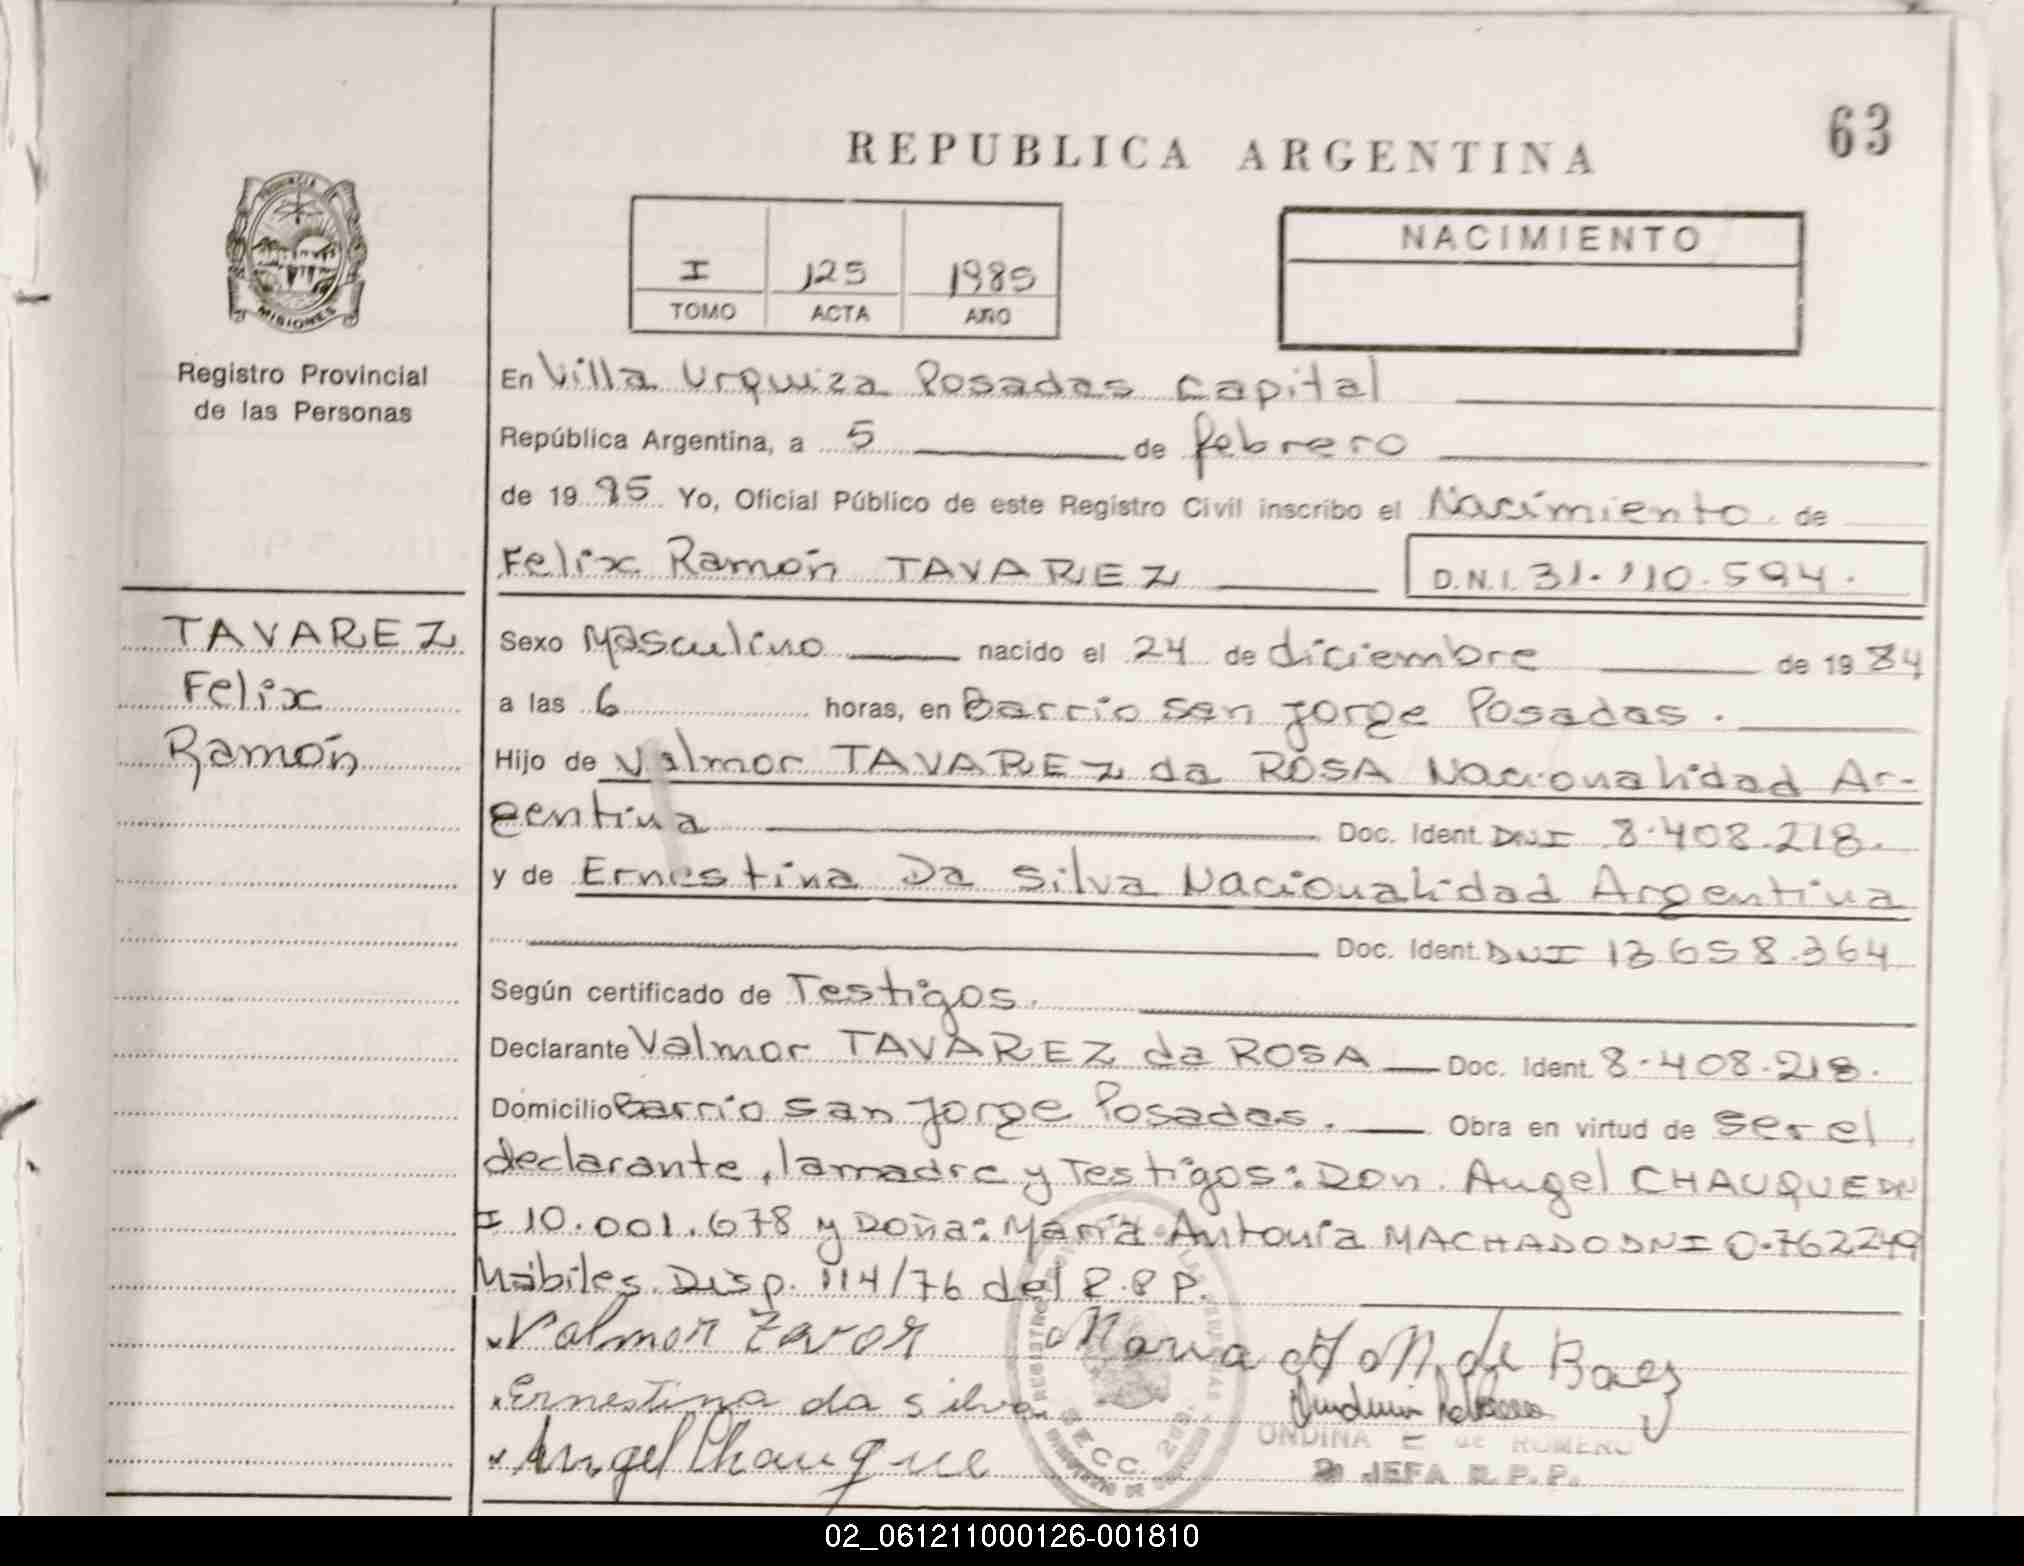 63
REPUBLICA ARGENTINA
PROVINCIA
MISIONES
Registro Provincial
de las Personas
I 125 1985
TOMO ACTA AÑO
NACIMIENTO
En Villa Urquiza Posadas Capital
República Argentina, a 5 de febrero
de 19 85 Yo, Oficial Público de este Registro Civil inscribo el Nacimiento de
Felix Ramón TAVAREZ D.N.I. 31.110.594.
TAVAREZ
Felix
Ramón
Sexo Masculino nacido el 24 de diciembre de 19 84
a las 6 horas, en Barrio San Jorge Posadas.
Hijo de Valmor TAVAREZ da ROSA Nacionalidad Ar-
gentina Doc. Ident. DNI 8.408.218.
y de Ernestina Da Silva Nacionalidad Argentina
Doc. Ident. DNI 13658.364
Según certificado de Testigos.
Declarante Valmor TAVAREZ da ROSA Doc. Ident. 8.408.218.
Domicilio Barrio San Jorge Posadas. Obra en virtud de ser el
declarante, la madre y Testigos: Don. Angel CHAUQUE DN
I 10.001.678 y Doña: María Antonia MACHADO DNI 0.762249
Disp. 114/76 del
Valmor
Maria de Baez
Ernestina da silva
Angel Chauque
SECC. 2da.
ONDINA E de ROMERO
JEFA R.P.P.
02_061211000126-001810